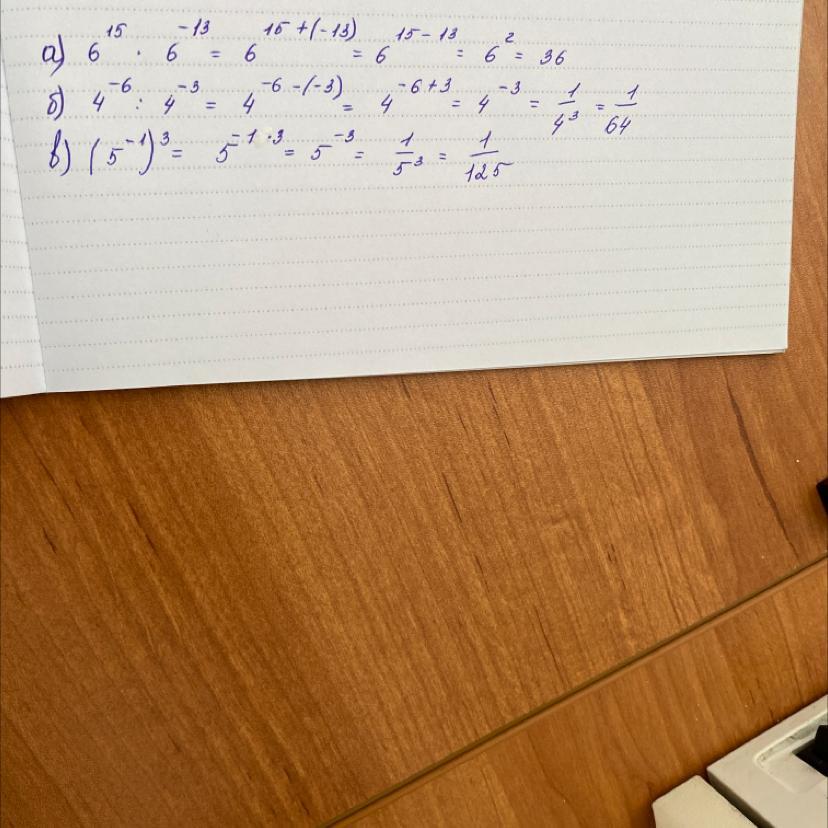 а) 6^15 · 6^-13 = 6^15+(-13) = 6^15-13 = 6^2 = 36
б) 4^-6 : 4^-3 = 4^-6-(-3) = 4^-6+3 = 4^-3 = 1/4^3 = 1/64
в) (5^-1)^3 = 5^-1·3 = 5^-3 = 1/5^3 = 1/125